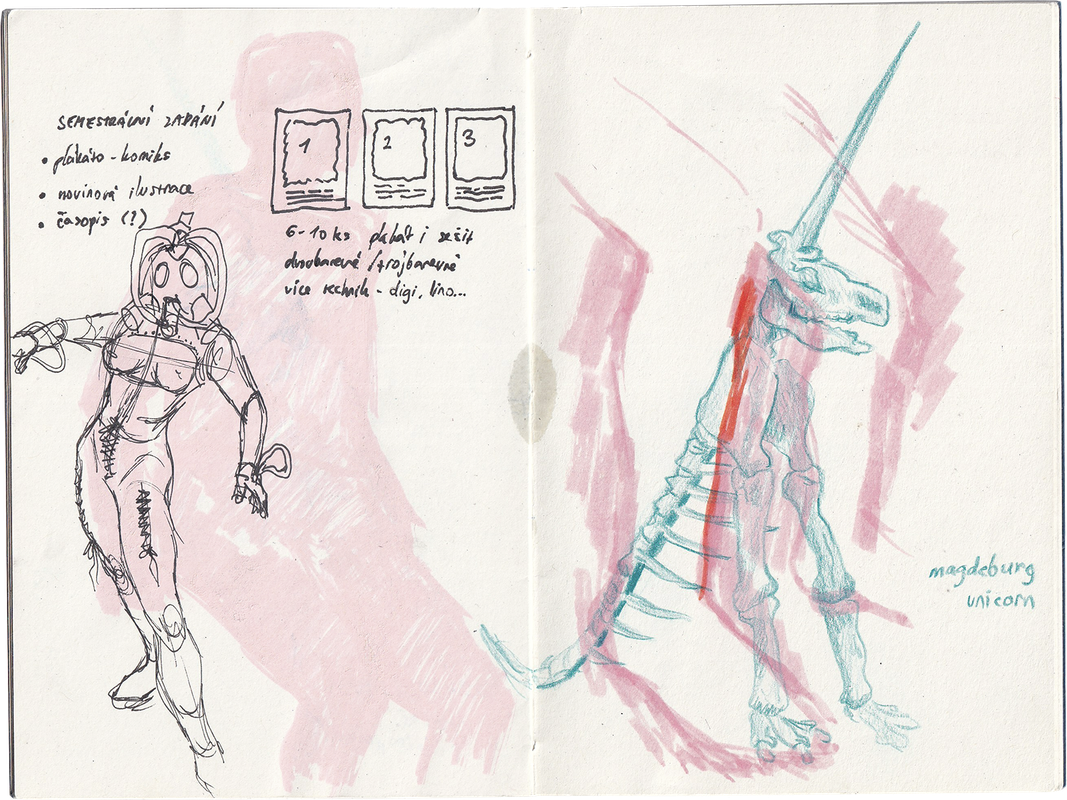 SEMESTRÁLNÍ ZADÁNÍ
• plakáto - komiks
• novinová ilustrace
• časopis (?)
1
2
3
6-10 ks plakát i sešit
dvoubarevné / trojbarevné
více technik - digi, lino...
magdeburg
unicorn